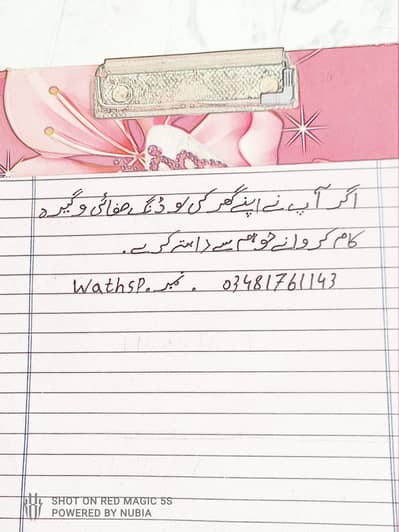 اگر آپ نے اپنے گھر کی لوڈنگ صفائی وگیرہ
کام کروانے تو ہم سے رابطہ کرے.
Wathsp. نمبر. 03481761143
SHOT ON RED MAGIC 5S
POWERED BY NUBIA